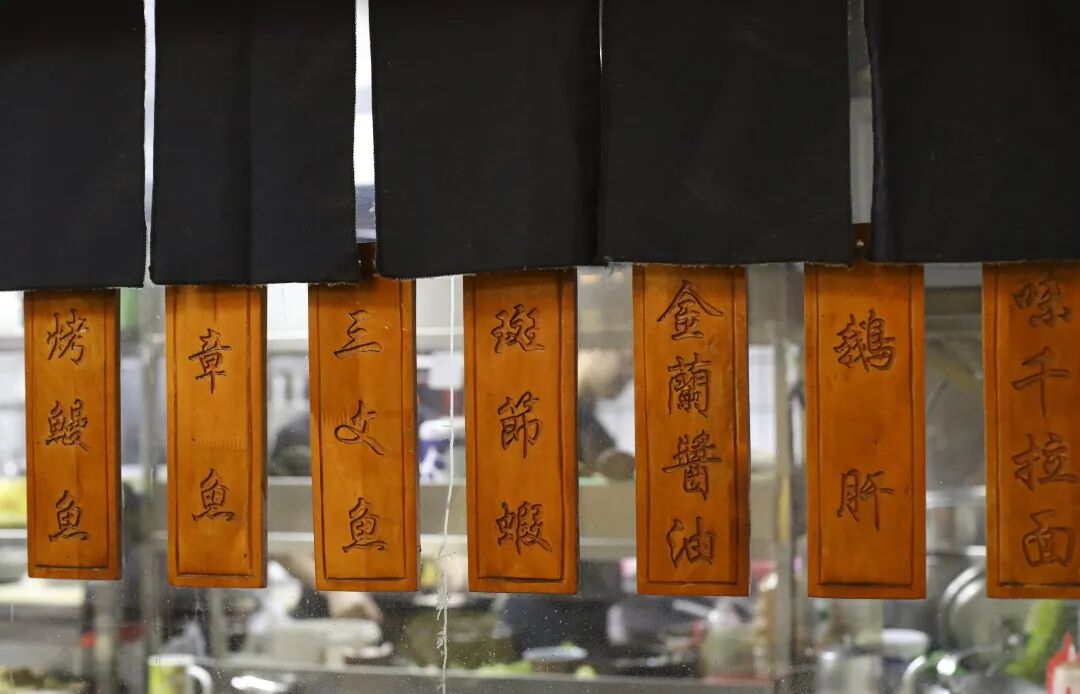 烤鳗魚
章魚
三文魚
斑節蝦
金蘭醬油
鵝肝
味千拉面